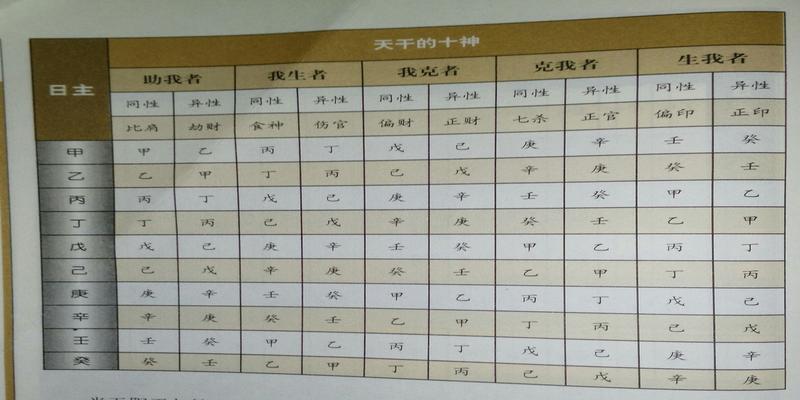 天干的十神
日主 助我者 我生者 我克者 克我者 生我者
同性 异性 同性 异性 同性 异性 同性 异性 同性 异性
比肩 劫财 食神 伤官 偏财 正财 七杀 正官 偏印 正印
甲 甲 乙 丙 丁 戊 己 庚 辛 壬 癸
乙 乙 甲 丁 丙 己 戊 辛 庚 癸 壬
丙 丙 丁 戊 己 庚 辛 壬 癸 甲 乙
丁 丁 丙 己 戊 辛 庚 癸 壬 乙 甲
戊 戊 己 庚 辛 壬 癸 甲 乙 丙 丁
己 己 戊 辛 庚 癸 壬 乙 甲 丁 丙
庚 庚 辛 壬 癸 甲 乙 丙 丁 戊 己
辛 辛 庚 癸 壬 乙 甲 丁 丙 己 戊
壬 壬 癸 甲 乙 丙 丁 戊 己 庚 辛
癸 癸 壬 乙 甲 丁 丙 己 戊 辛 庚